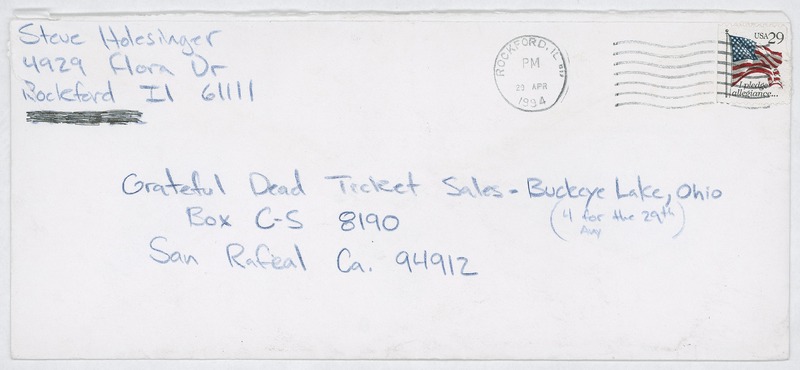 Steve Holesinger
4929 Flora Dr
Rockford Il 61111
ROCKFORD, IL
PM
29 APR
1994
USA 29
I pledge
allegiance...
Grateful Dead Ticket Sales - Buckeye Lake, Ohio
Box C-S 8190
(4 for the 29th)
San Rafeal Ca. 94912